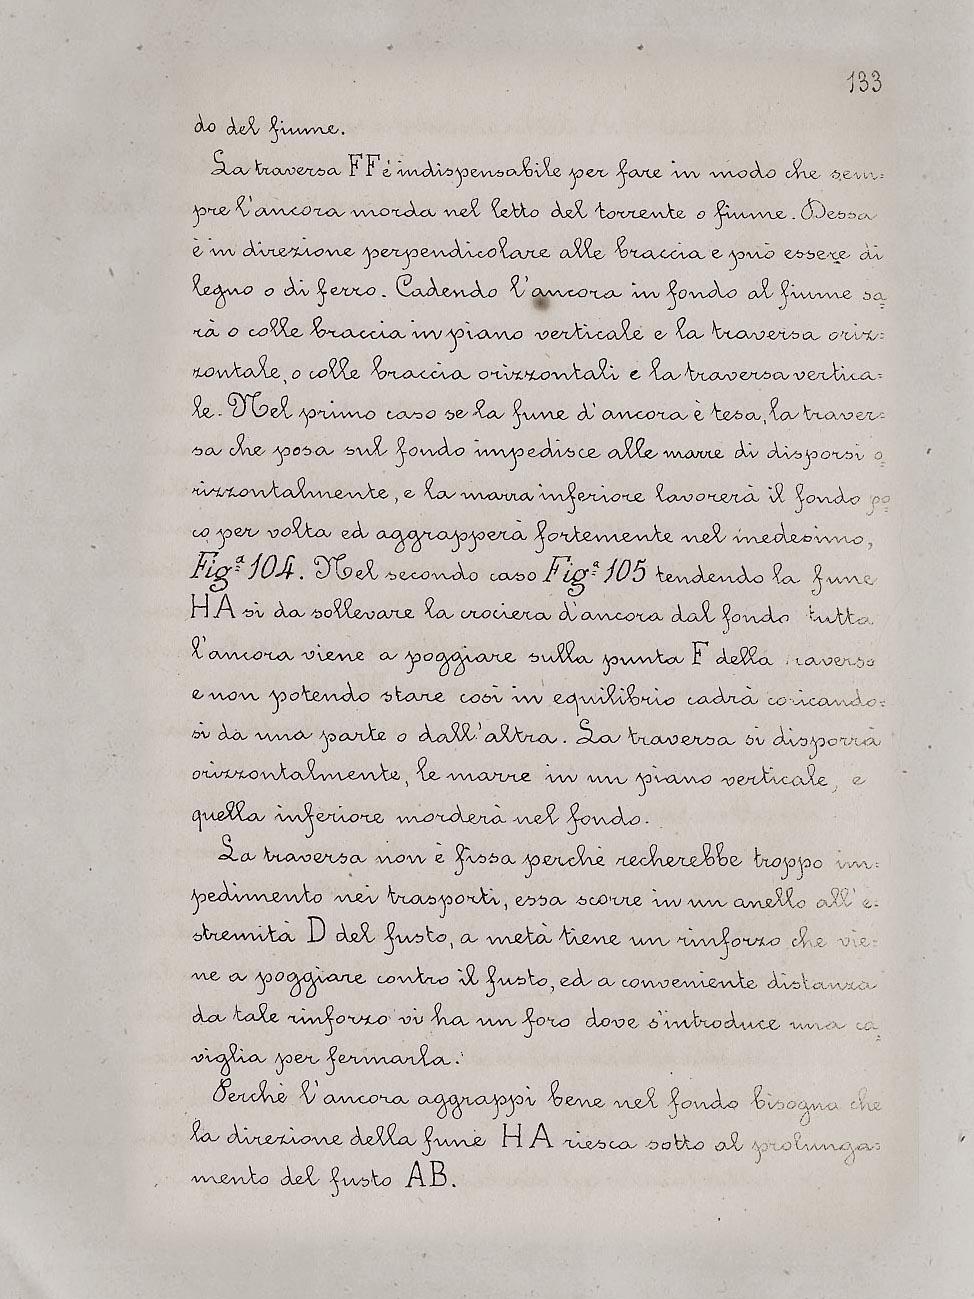 133
do del fiume.
La traversa FF è indispensabile per fare in modo che sem=
pre l'ancora morda nel letto del torrente o fiume. Dessa
è in direzione perpendicolare alle braccia e può essere di
legno o di ferro. Cadendo l'ancora in fondo al fiume sa=
rà o colle braccia in piano verticale e la traversa oriz=
zontale, o colle braccia orizzontali e la traversa vertica=
le. Nel primo caso se la fune d'ancora è tesa, la traver=
sa che posa sul fondo impedisce alle marre di disporsi o=
rizzontalmente, e la marra inferiore lavorerà il fondo po=
co per volta ed aggrapperà fortemente nel medesimo,
Figª 104. Nel secondo caso Figª 105 tendendo la fune
HA si da sollevare la crociera d'ancora dal fondo tutta
l'ancora viene a poggiare sulla punta F della traversa
e non potendo stare così in equilibrio cadrà coricando=
si da una parte o dall'altra. La traversa si disporrà
orizzontalmente, le marre in un piano verticale, e
quella inferiore morderà nel fondo.
La traversa non è fissa perchè recherebbe troppo im=
pedimento nei trasporti, essa scorre in un anello all'e=
stremità D del fusto, a metà tiene un rinforzo che vie=
ne a poggiare contro il fusto, ed a conveniente distanza
da tale rinforzo vi ha un foro dove s'introduce una ca=
viglia per fermarla.
Perchè l'ancora aggrappi bene nel fondo bisogna che
la direzione della fune HA riesca sotto al prolunga=
mento del fusto AB.